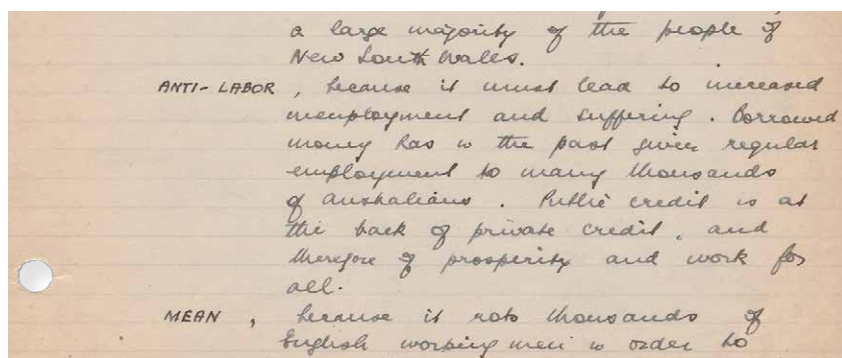 a large majority of the people of
New South Wales.
ANTI-LABOR, because it must lead to increased
unemployment and suffering. Borrowed
money has in the past given regular
employment to many thousands
of Australians. Public credit is at
the back of private credit, and
therefore of prosperity and work for
all.
MEAN, because it robs thousands of
English working men in order to